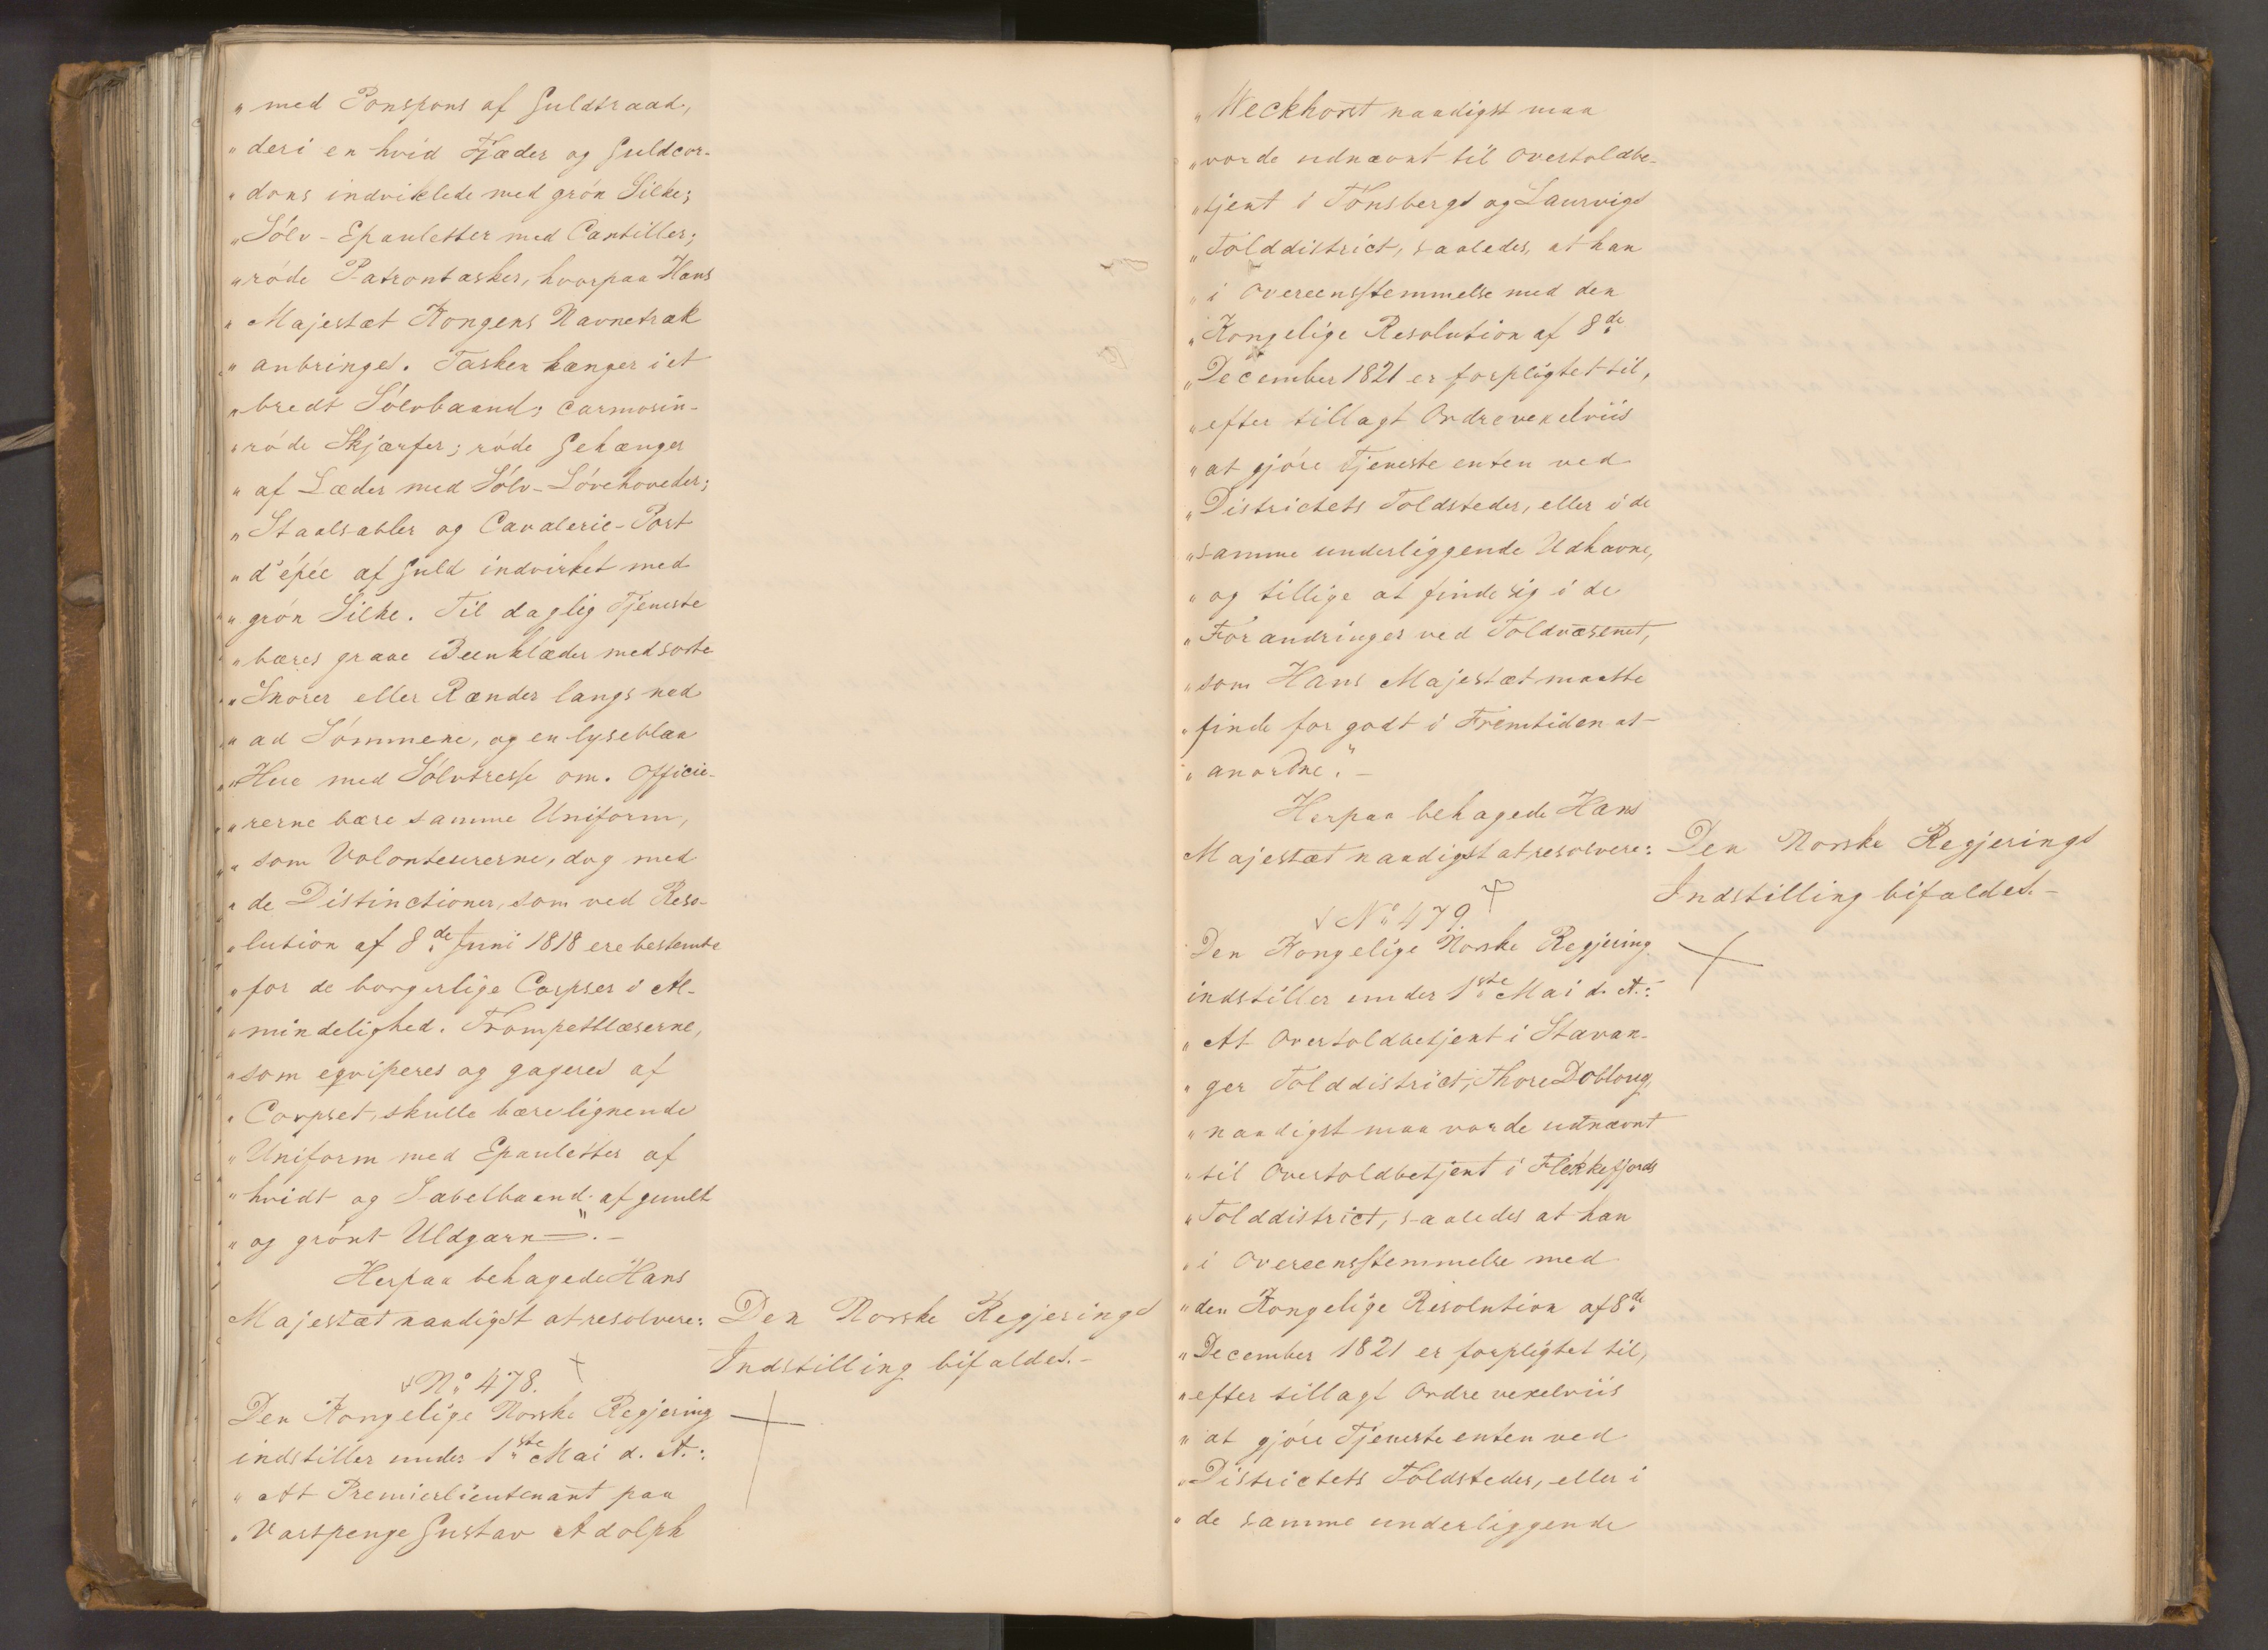 „med Ponspons af Guldtraad,
„deri en hvid Fjæder og Guldcor-
„dons indviklede med grön Silke;
„Sölv-Epauletter med Cantiller;
„röde Patrontasker, hvorpaa Hans
„Majestæt Kongens Navnetræk
„anbringes. Tasken hænger i et
„bredt Sölvbaand; carmosin-
„röde Skjærfer; röde Gehænger
„af Læder med Sölv-Lövehoveder;
„Staalsabler og Cavalerie-Port
„d'épée af Guld indvirket med
„grön Silke. Til daglig Tjeneste
„bæres graae Beenklæder med sorte
„Snorer eller Rænder langs ned
„ad Sömmene, og en lyseblaa
„Hue med Sölvtresse om. Officie-
„rerne bære samme Uniform,
„som Volonteurerne, dog med
„de Distinctioner, som ved Reso-
„lution af 8de Juni 1818 ere bestemte
„for de borgerlige Corpser i Al-
„mindelighed. Trompetblæserne,
„som eqviperes og gageres af
„Corpset, skulle bære lignende
„Uniform med Epauletter af
„hvidt og Sabelbaand af guult
„og grönt Uldgarn“.-
Herpaa behagede Hans
Majestæt naadigst at resolvere:
Den Norske Regjerings
Indstilling bifaldes.-
No 478.
Den Kongelige Norske Regjering
indstiller under 1ste Mai d. A.:
„At Premierlieutenant paa
„Vartpenge Gustav Adolph
„Weckhorst naadigst maa
„vorde udnævnt til Overtoldbe-
„tjent i Tönsbergs og Laurvigs
„Tolddistrict, saaledes, at han
„i Overeensstemmelse med den
„Kongelige Resolution af 8de
„December 1821 er forpligtet til,
„efter tillagt Ordre vexelviis
„at gjöre Tjeneste enten ved
„Districtets Toldsteder, eller i de
„samme underliggende Udhavne,
„og tillige at finde sig i de
„Forandringer ved Toldvæsenet,
„som Hans Majestæt maatte
„finde for godt i Fremtiden at
„anordne.“-
Herpaa behagede Hans
Majestæt naadigst at resolvere:
Den Norske Regjerings
Indstilling bifaldes.-
No 479.
Den Kongelige Norske Regjering
indstiller under 1ste Mai d. A.:
„At Overtoldbetjent i Stavan-
„ger Tolddistrict, Thore Dobloug,
„naadigst maa vorde udnævnt
„til Overtoldbetjent i Flekkefjords
„Tolddistrict, saaledes at han
„i Overeensstemmelse med
„den Kongelige Resolution af 8de
„December 1821 er forpligtet til,
„efter tillagt Ordre vexelviis
„at gjöre Tjeneste enten ved
„Districtets Toldsteder, eller i
„de samme underliggende